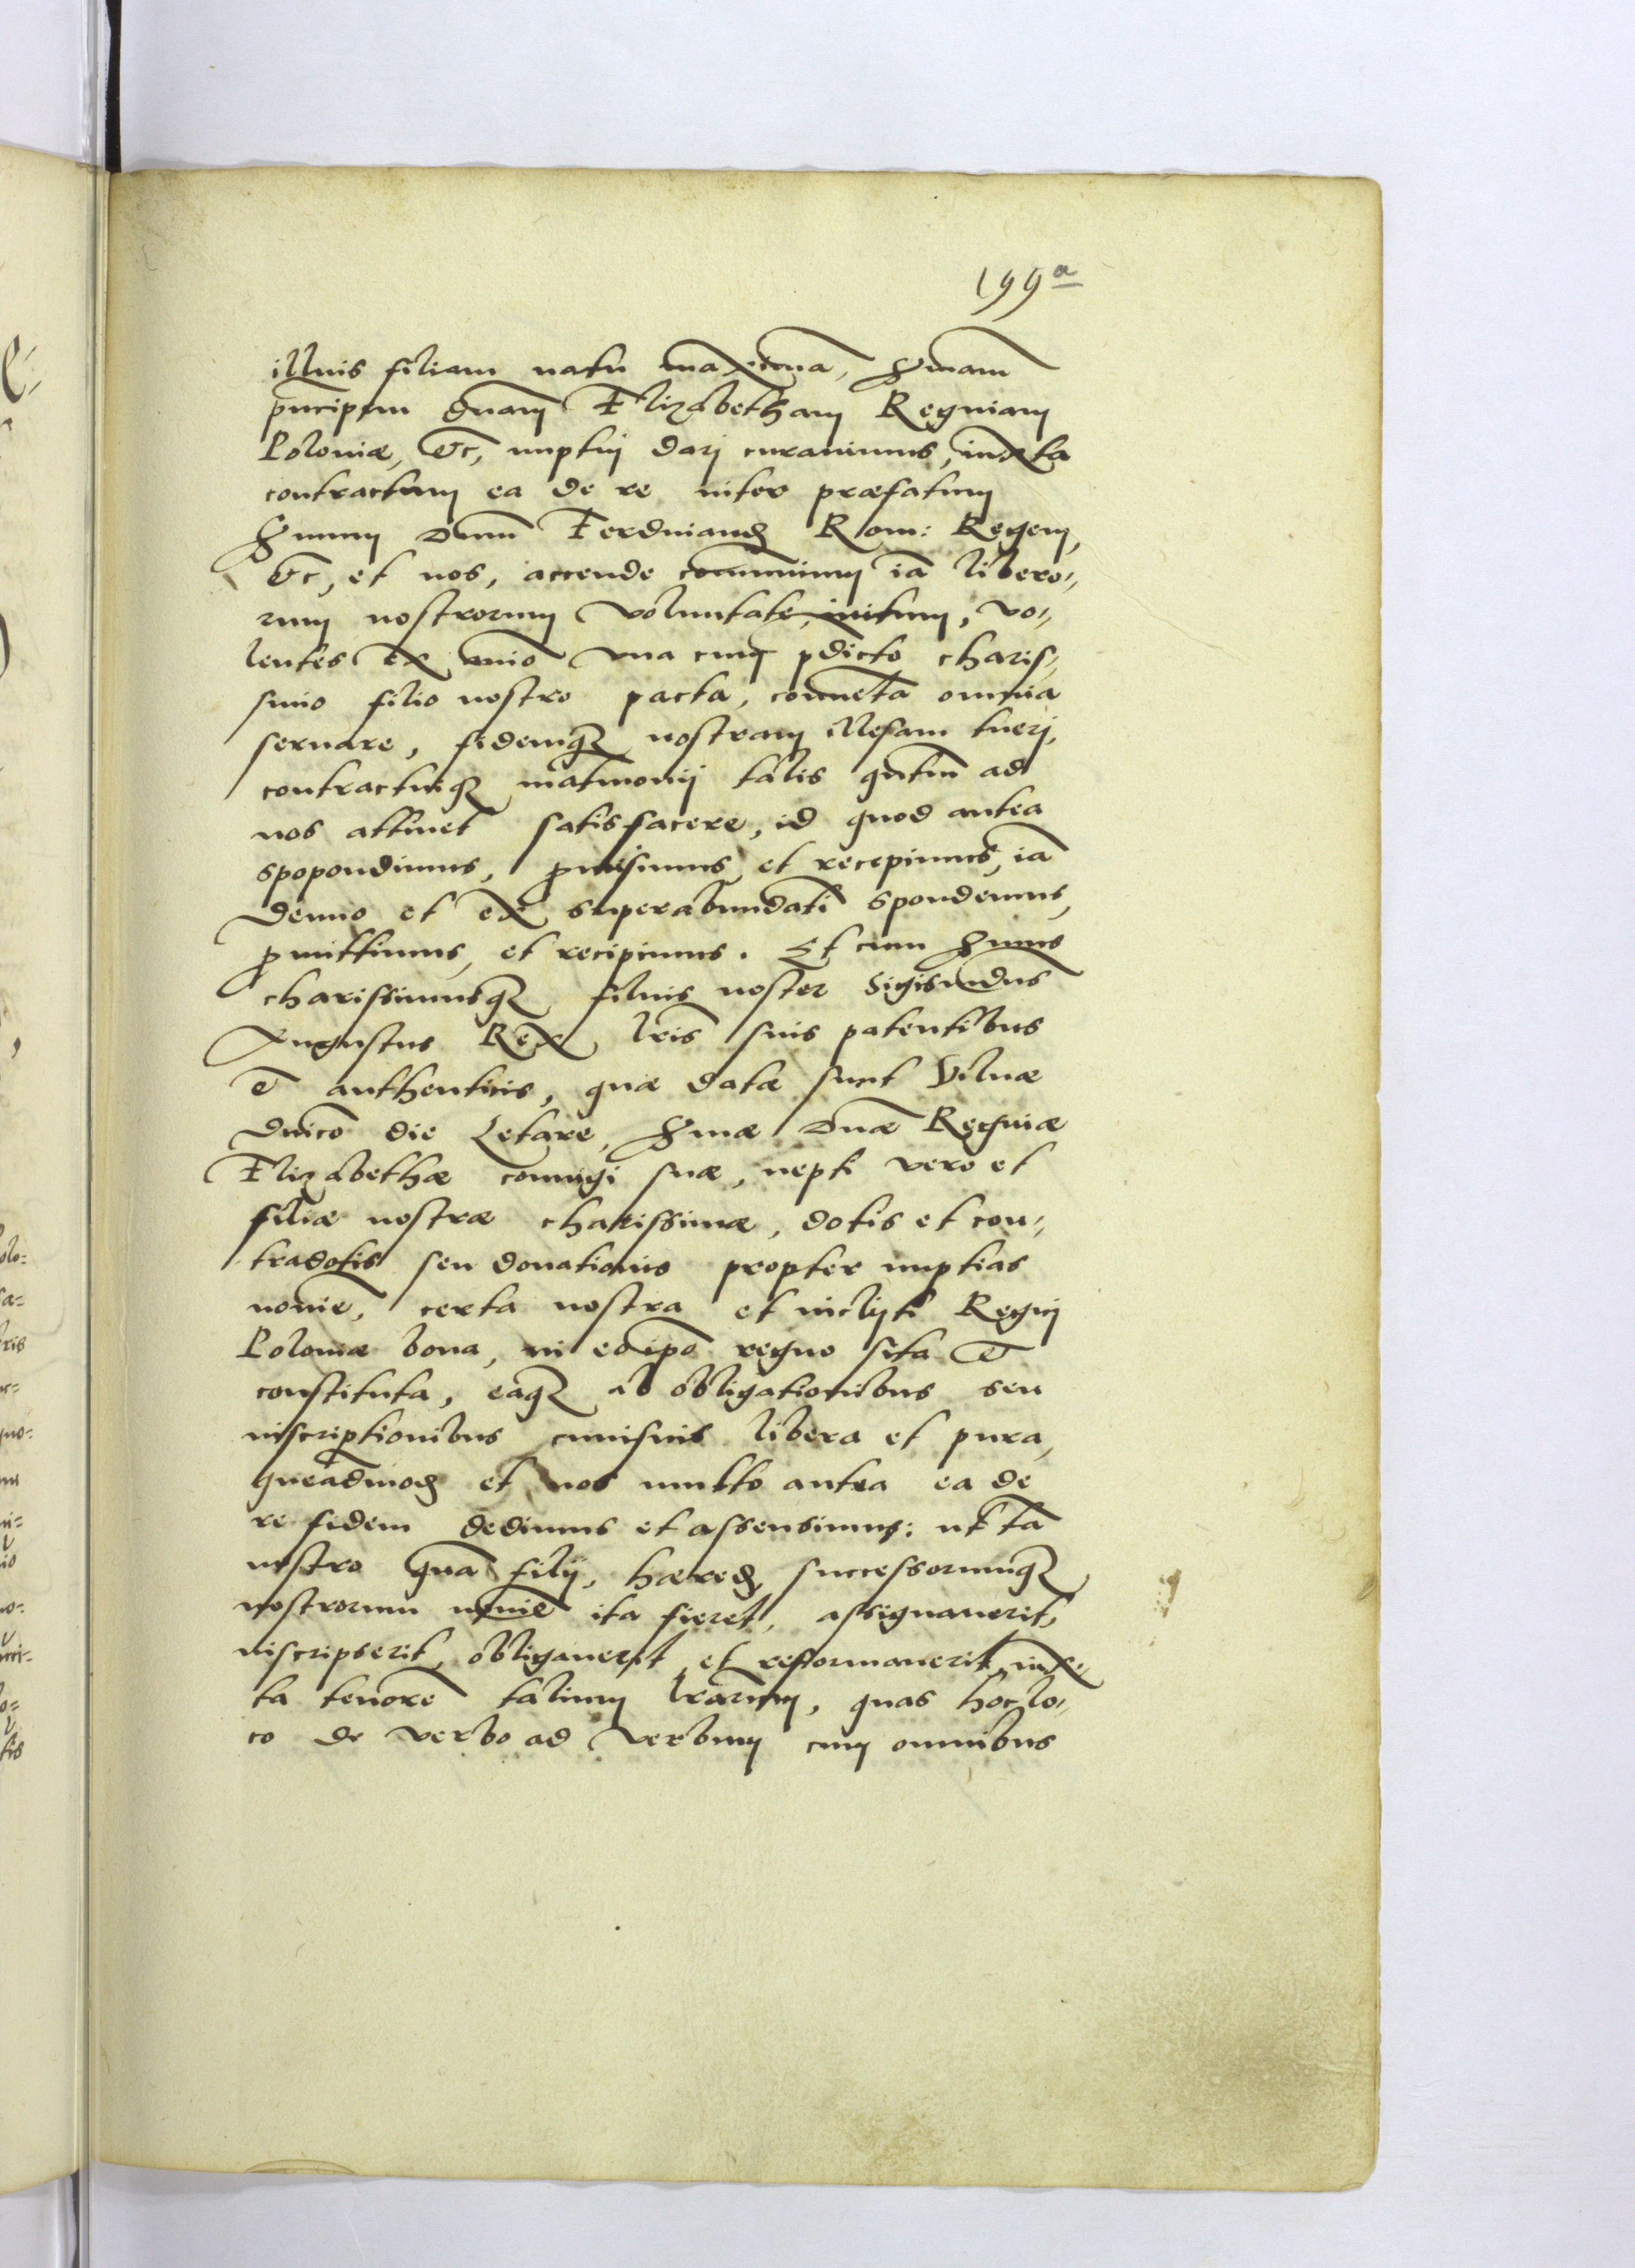 199a
illius filiam natu maximã, Sermam
pncipem dnam Elizabetham Reginam
Poloniæ, &c, nuptui dari curauimus, iuxta
contractum ea de re inter præfatum
Sermum Dnum Ferdinand Rom: Regem,
&c, et nos, accende communium iã libero,,
rum nostrorum voluntate, initum, vo,,
lentes ex animo vna cum pdicto charis,,
simo filio nostro pacta, conuẽta omnia
seruare, fidemq3 nostram illesam tueri,
contractuiq3 matrimonij talis qntum ad
nos attinet satisfacere, id quod antea
spopondimus, pmisimus, et recepimus, iã
denuo et ex superabundãti spondemus,
pmittimus, et recipimus. Et cum Sermus
charissimusq3 filius noster Sigismũdus
Augustus Rex lris suis patentibus
& authenticis, quæ datæ sunt Vilnæ
dnico die Letare, Sermæ Dnæ Reginæ
Elizabethæ coniugi suæ, nepti vero et
filiæ nostræ charissimæ, dotis et con,,
tradotis seu donationis propter nuptias
noïe, certa nostra et inclyti Regni
Poloniæ bona, in eo ipo regno sita &
constituta, eaq3 ab obligationibus seu
inscriptionibus cuiusuis libera et pura,
queadmod et nos multo antea ea de
re fidem dedimus et assensimus: ut tã
nostro quã filij, hæred, successorumq3
nostrorum noïe ita fieret, assignauerit,
inscripserit, obligauerit, et reformauerit, iux,,
ta tenorẽ talium lrarum, quas hoc lo,,
co de verbo ad verbum cum omnibus